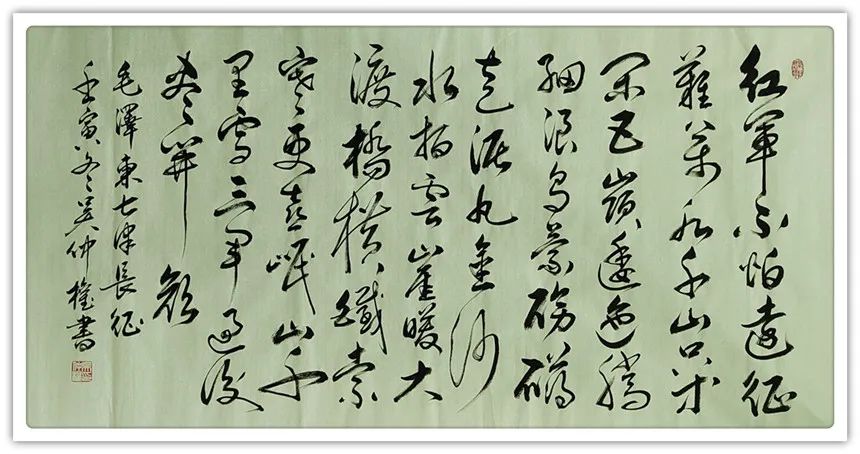 紅軍不怕遠征
難萬水千山只等
閑五嶺逶迤騰
細浪烏蒙磅礴
走泥丸金沙
水拍雲崖暖大
渡橋橫鐵索
寒更喜岷山千
里雪三軍過後
盡開顏
毛澤東七律長征
壬寅冬吳仲權書